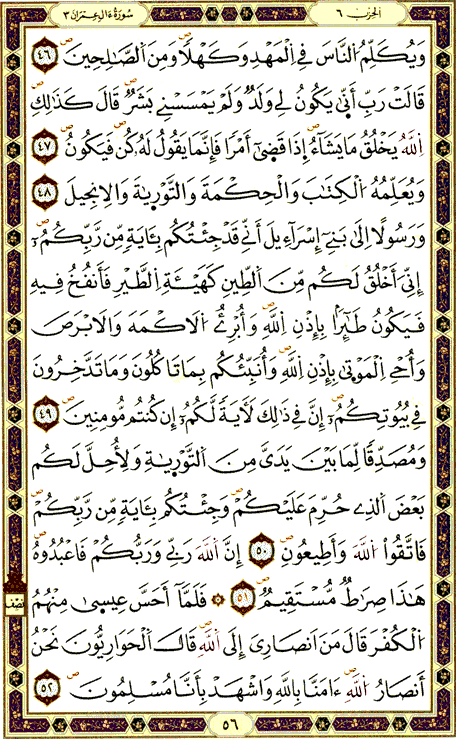 الحِزْبُ ٦
سُورَةُ ءَالِ عِمْرَان ٣
وَيُكَلِّمُ النَّاسَ فِے اِلْمَهْدِ وَكَهْلًا وَمِنَ اَلصَّٰلِحِينَ ٤٦
قَالَتْ رَبِّ أَنّ۪يٰ يَكُونُ لِے وَلَدٌ وَلَمْ يَمْسَسْنِے بَشَرٌ قَالَ كَذَٰلِكِ
اِللَّهُ يَخْلُقُ مَا يَشَآءُ اِذَا قَض۪يٰٓ أَمْرًا فَإِنَّمَا يَقُولُ لَهُۥ كُن فَيَكُونُ ٤٧
وَيُعَلِّمُهُ اُلْكِتَٰبَ وَالْحِكْمَةَ وَالتَّوْر۪يٰةَ وَالِانجِيلَ ٤٨
وَرَسُولًا اِلَىٰ بَنِےٓ إِسْرَآءِيلَ أَنِّے قَدْ جِئْتُكُم بِـَٔايَةٍ مِّن رَّبِّكُمُۥٓ
إِنِّيَ أَخْلُقُ لَكُم مِّنَ اَلطِّينِ كَهَيْـَٔةِ اِلطَّيْرِ فَأَنفُخُ فِيهِ
فَيَكُونُ طَٰٓئِرًا بِإِذْنِ اِللَّهِ وَأُبْرِۓُ اُلَاكْمَهَ وَالَابْرَصَ
وَأُحْيِ اِلْمَوْت۪يٰ بِإِذْنِ اِللَّهِ وَأُنَبِّئُكُم بِمَا تَاكُلُونَ وَمَا تَدَّخِرُونَ
فِے بُيُوتِكُمُۥٓ إِنَّ فِے ذَٰلِكَ لَأٓيَةً لَّكُمُۥٓ إِن كُنتُم مُّومِنِينَ ٤٩
وَمُصَدِّقًا لِّمَا بَيْنَ يَدَيَّ مِنَ اَلتَّوْر۪يٰةِ وَلِأُحِلَّ لَكُم
بَعْضَ اَلذِے حُرِّمَ عَلَيْكُمْ وَجِئْتُكُم بِـَٔايَةٍ مِّن رَّبِّكُمْ
فَاتَّقُوا۟ اُللَّهَ وَأَطِيعُونِ ٥٠ إِنَّ اَللَّهَ رَبِّے وَرَبُّكُمْ فَاعْبُدُوهُ
هَٰذَا صِرَٰطٌ مُّسْتَقِيمٌ ٥١ ۞ فَلَمَّآ أَحَسَّ عِيس۪يٰ مِنْهُمُ
نصف
اُلْكُفْرَ قَالَ مَنَ اَنصَارِيَ إِلَى اَللَّهِ قَالَ اَلْحَوَارِيُّونَ نَحْنُ
أَنصَارُ اُللَّهِ ءَامَنَّا بِاللَّهِ وَاشْهَدْ بِأَنَّا مُسْلِمُونَ ٥٢
٥٦